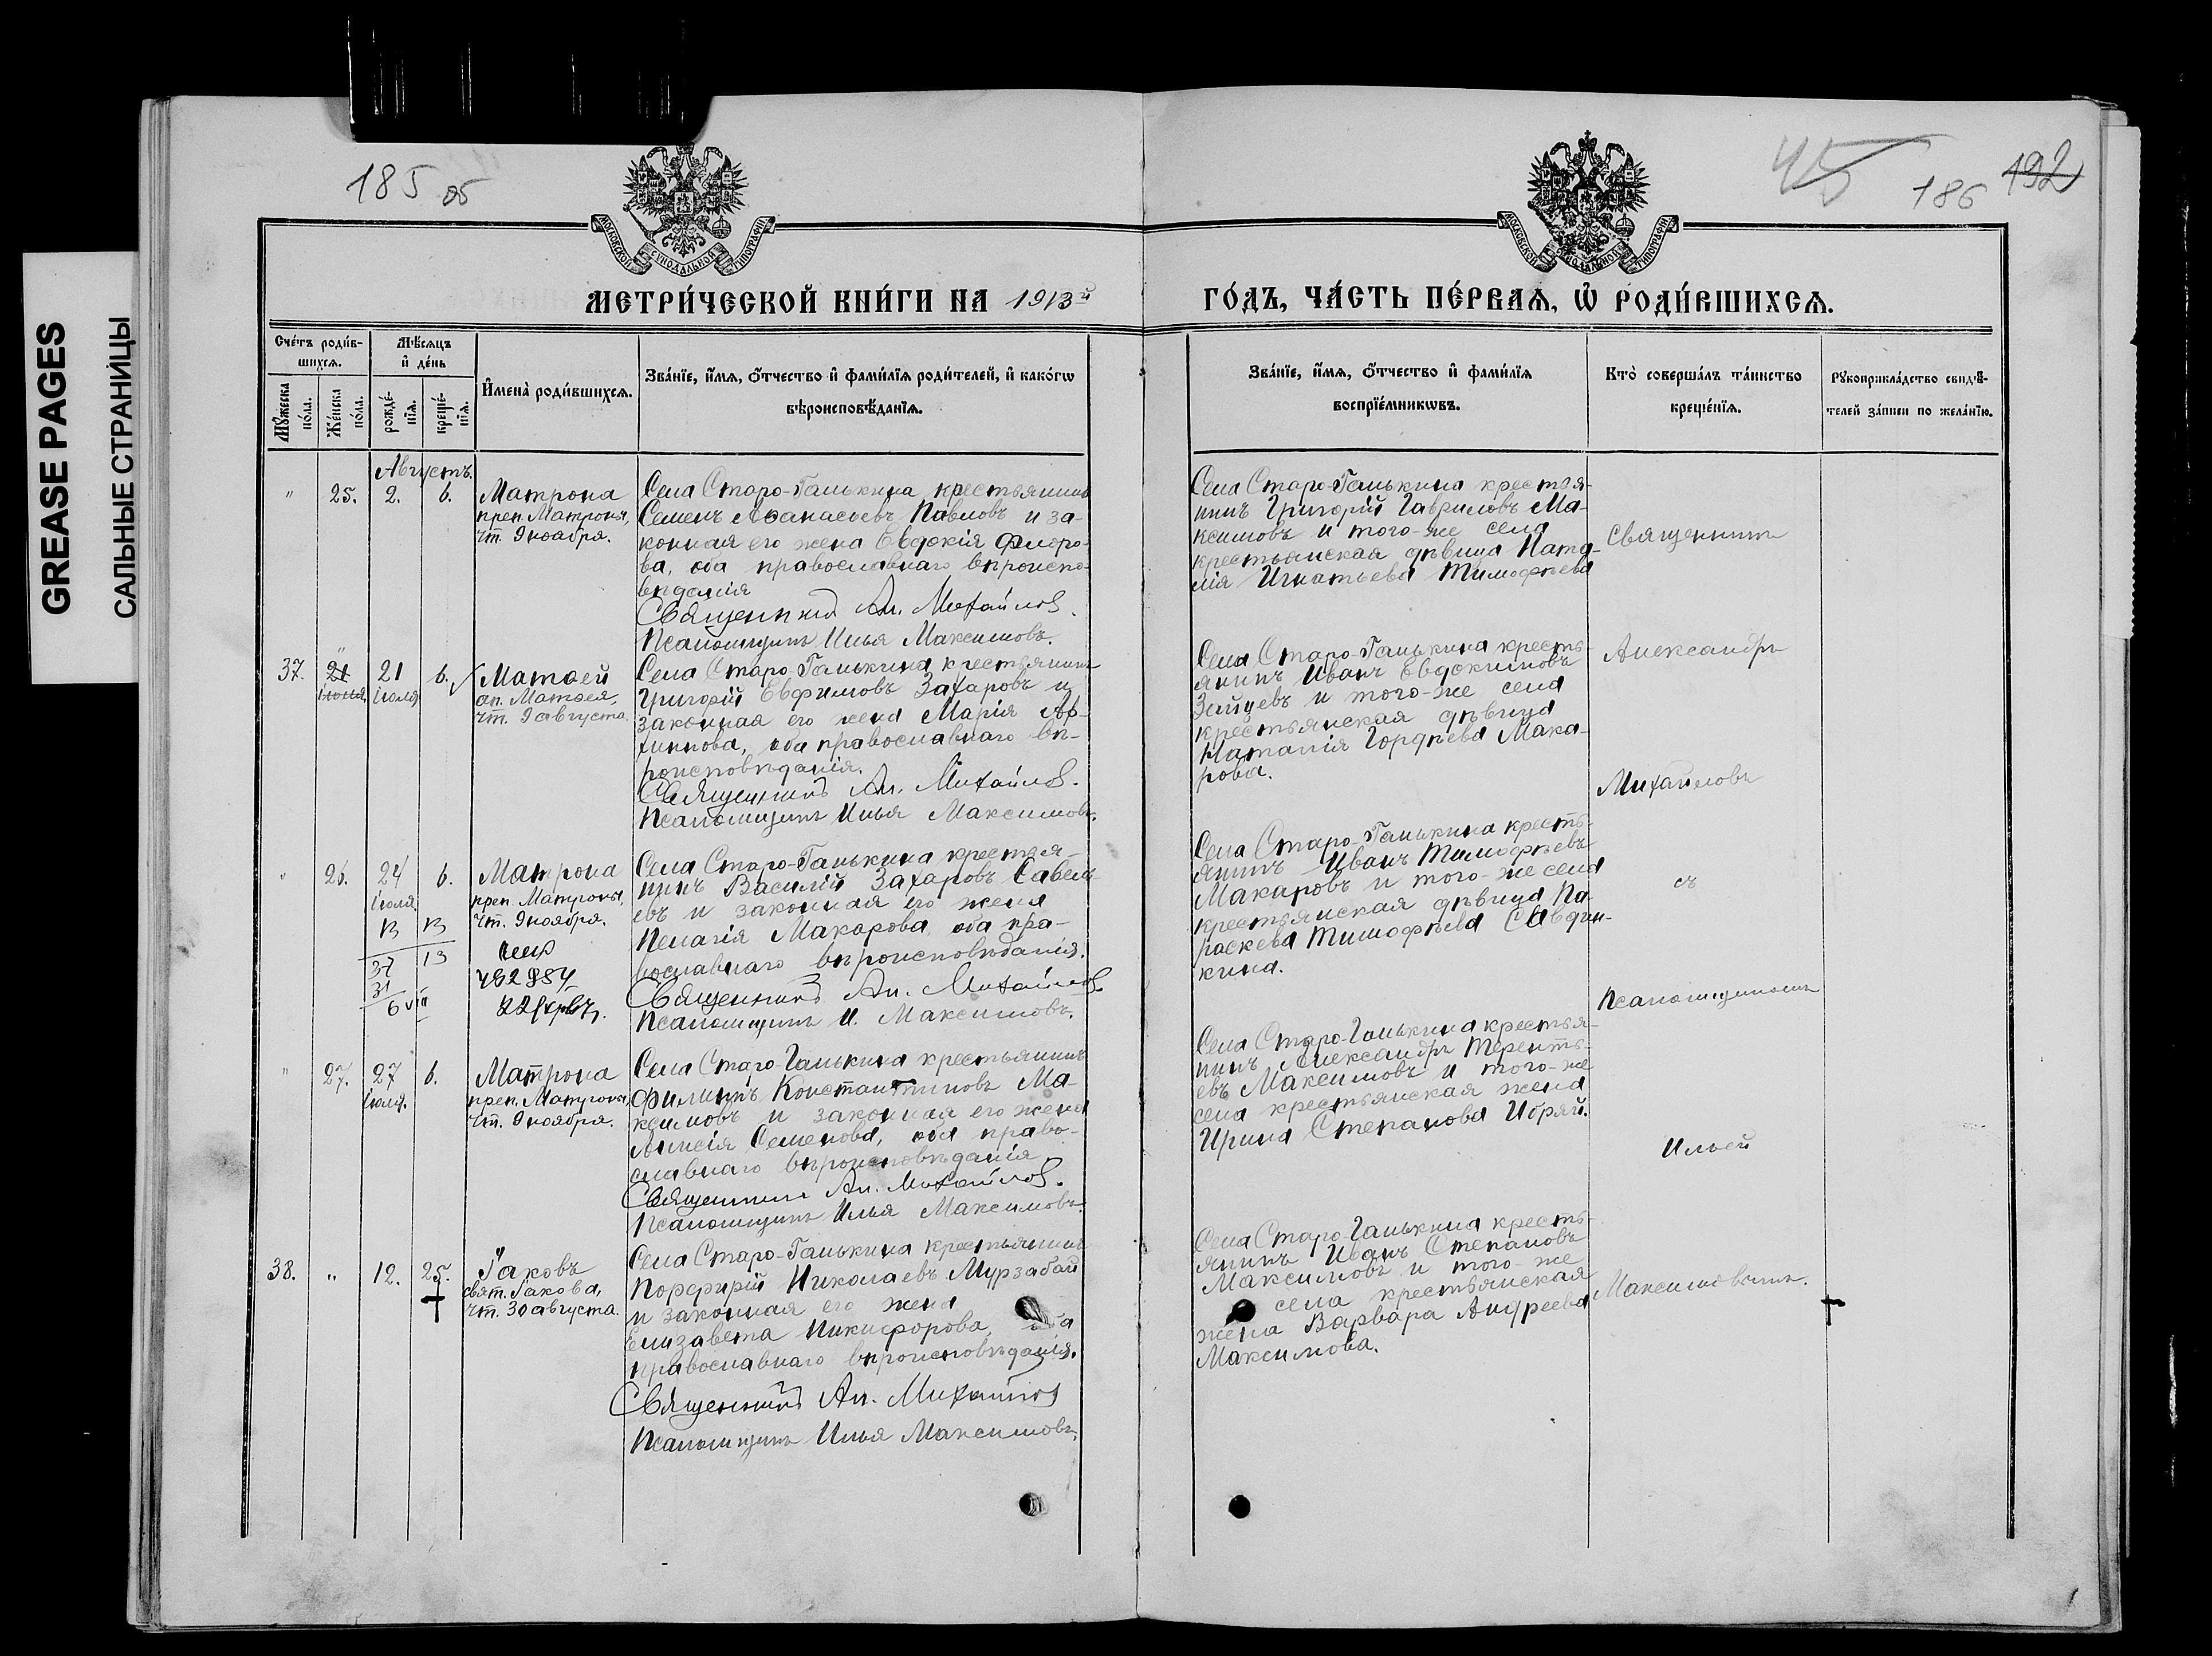 GREASE PAGES
САЛЬНЫЕ СТРАНИЦЫ
185 об
186
192
МОСКОВСКОЙ СУНОДАЛЬНОЙ ТИПОГРАФІИ.
МОСКОВСКОЙ СУНОДАЛЬНОЙ ТИПОГРАФІИ.
МЕТРИ́ЧЕСКОЙ КНИ́ГИ НА 1913й
ГО́ДЪ, ЧА́СТЬ ПЕ́РВАѦ, Ѡ҆ РОДИ́ВШИХСѦ.
Сче́тъ роди́в-
шихсѧ.
Мꙋ́жеска по́ла.
Же́нска по́ла.
Мѣ́сѧцъ
и҆ де́нь
рожде́-
нїѧ.
креще́-
нїѧ.
И҆мена̀ роди́вшихсѧ.
Зва́нїе, и҆́мѧ, ѻ҆́тчество и҆ фами́лїѧ роди́телей, и҆ како́гѡ
вѣроисповѣ́данїѧ.
Зва́нїе, и҆́мѧ, ѻ҆́тчество и҆ фами́лїѧ
воспрїе́мникѡвъ.
Кто̀ соверша́лъ та́инство
креще́нїѧ.
Рꙋкоприкла́дство свидѣ́-
телей за́писи по жела́нїю.
Августъ.
" 25. 2. 6.
Матрона
преп. Матроны,
чт. 9 ноября.
Села Старо-Ганькина крестьянинъ
Семенъ Аѳанасьевъ Павловъ и за-
конная его жена Евдокія Флоро-
ва, оба православнаго вѣроиспо-
вѣданія
Священникъ Ал. Михайлов.
Псаломщикъ Илья Максимовъ.
Села Старо-Ганькина крестья-
нинъ Григорій Гавриловъ Ма-
ксимовъ и того-же села
крестьянская дѣвица Ната-
лія Игнатьева Тимофѣева
Священникъ
37. 21 21 6.
іюня, іюля
Матѳей
ап. Матѳея,
чт. 9 августа.
Села Старо-Ганькина крестьянинъ
Григорій Евфимовъ Захаровъ и
законная его жена Марія Ар-
хиппова, оба православнаго вѣ-
роисповѣданія.
Священникъ Ал. Михайлов.
Псаломщикъ Илья Максимовъ.
Села Старо-Ганькина кресть-
янинъ Иванъ Евдокимовъ
Зайцевъ и того-же села
крестьянская дѣвица
Наталія Гордѣева Мака-
рова.
Александръ
Михайловъ
" 26. 24 6.
іюля.
Матрона
преп. Матроны,
чт. 9 ноября.
13 13
37 13
31
6 VIII
Села Старо-Ганькина крестья-
нинъ Василій Захаровъ Савель-
евъ и законная его жена
Пелагія Макарова, оба пра-
вославнаго вѣроисповѣданія.
Священникъ Ал. Михайлов.
Псаломщикъ И. Максимовъ.
Села Старо-Ганькина кресть-
янинъ Иванъ Тимофѣевъ
Макаровъ и того-же села
крестьянская дѣвица Па-
раскева Тимофѣева Савдин-
кина.
съ
Псаломщикомъ
" 27. 27 6.
іюля.
Матрона
преп. Матроны,
чт. 9 ноября.
Села Старо-Ганькина крестьянинъ
Филиппъ Константиновъ Ма-
ксимовъ и законная его жена
Анисія Семенова, оба право-
славнаго вѣроисповѣданія
Священникъ Ал. Михайлов.
Псаломщикъ Илья Максимовъ.
Села Старо-Ганькина крестья-
нинъ Александръ Теренть-
евъ Максимовъ и того-же
села крестьянская жена
Ирина Степанова Ибряй.
Ильей
38. " 12. 25.
Іаковъ
свят. Іакова,
чт. 30 августа.
Села Старо-Ганькина крестьянинъ
Порфирій Николаевъ Мурзабай
и законная его жена
Елизавета Никифорова, оба
православнаго вѣроисповѣданія.
Священникъ Ал. Михайлов
Псаломщикъ Илья Максимовъ.
Села Старо-Ганькина кресть-
янинъ Иванъ Степановъ
Максимовъ и того-же
села крестьянская
жена Варвара Андреева
Максимова.
Максимовымъ.